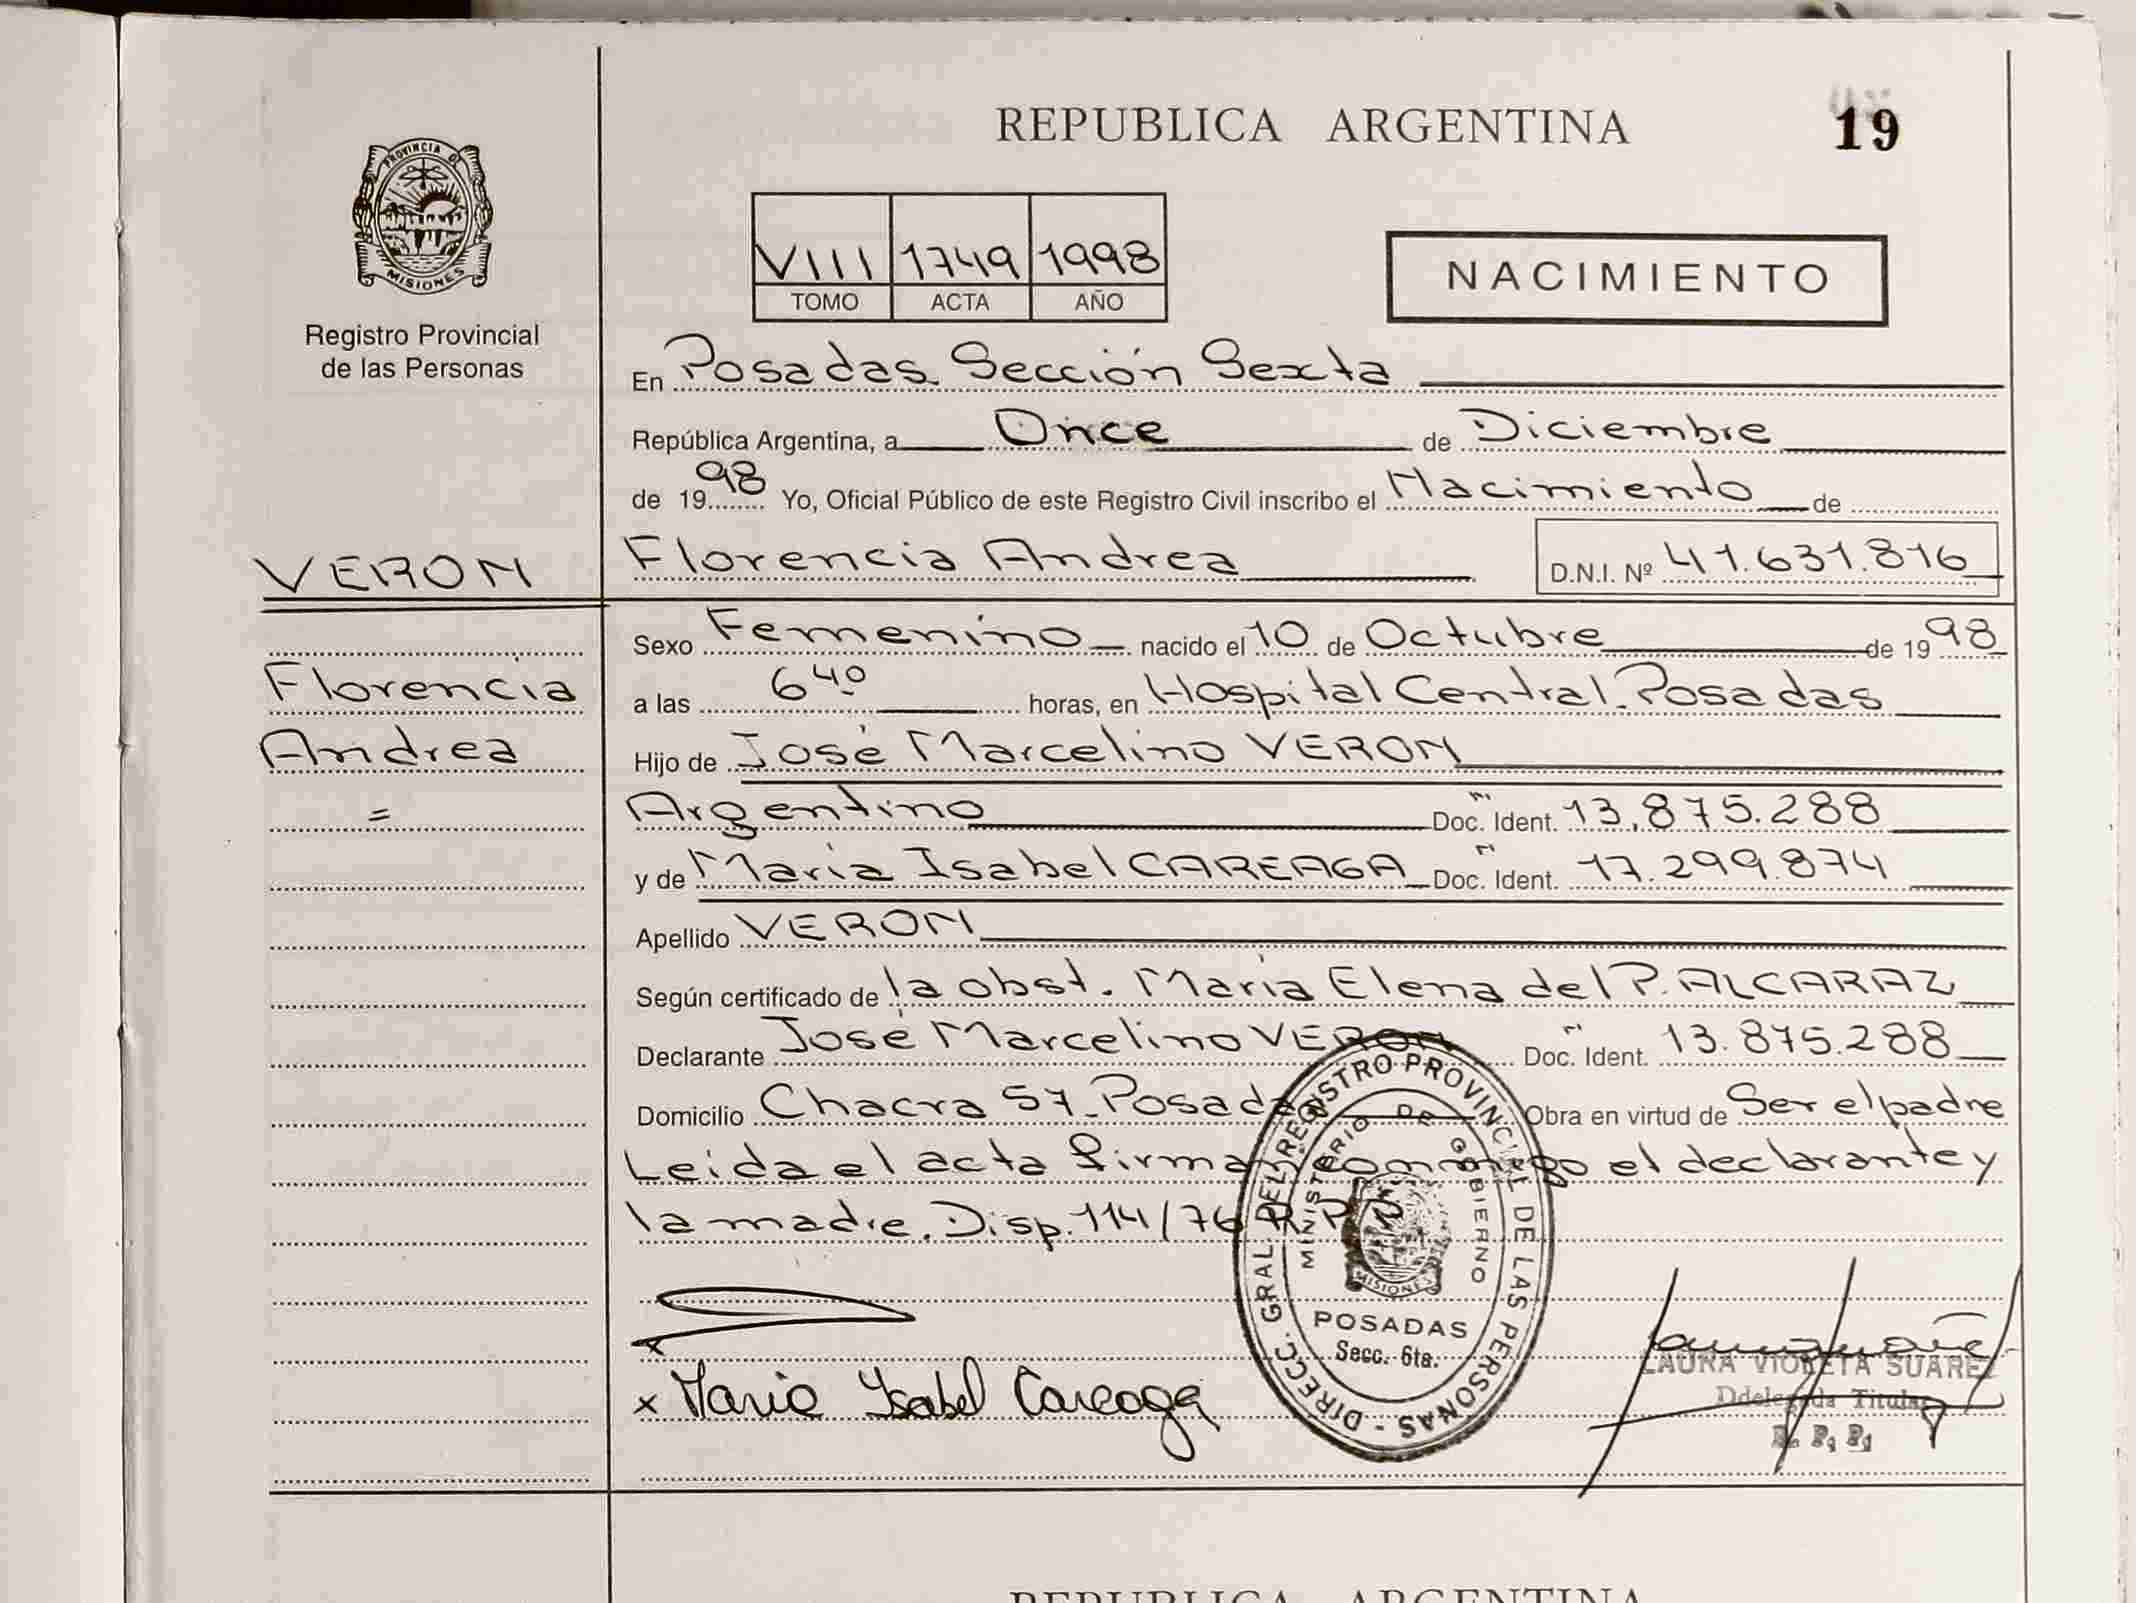 REPUBLICA ARGENTINA
19
PROVINCIA DE
MISIONES
Registro Provincial
de las Personas
VIII 1749 1998
TOMO ACTA AÑO
NACIMIENTO
En Posadas Sección Sexta
República Argentina, a Once de Diciembre
de 1998 Yo, Oficial Público de este Registro Civil inscribo el Nacimiento de
VERON Florencia Andrea D.N.I. Nº 41.631.816
Florencia
Andrea
=
Sexo Femenino nacido el 10 de Octubre de 1998
a las 6 40 horas, en Hospital Central. Posadas
Hijo de José Marcelino VERON
Argentino Doc. Ident. 13.875.288
y de María Isabel CAREAGA Doc. Ident. 17.299.874
Apellido VERON
Según certificado de la obst. María Elena del P. ALCARAZ
Declarante José Marcelino VERON Doc. Ident. 13.875.288
Domicilio Chacra 57. Posadas Obra en virtud de Ser el padre
Leida el acta firman conmigo el declarante y
la madre. Disp. 114/76 R.P.P.
x Maria Ysabel Careaga
DIRECC. GRAL. DEL REGISTRO PROVINCIAL DE LAS PERSONAS -
MINISTERIO DE GOBIERNO
MISIONES
POSADAS
Secc. 6ta.
LAURA VIOLETA SUAREZ
Ddelegada Titular
R. P. P.
REPUBLICA ARGENTINA